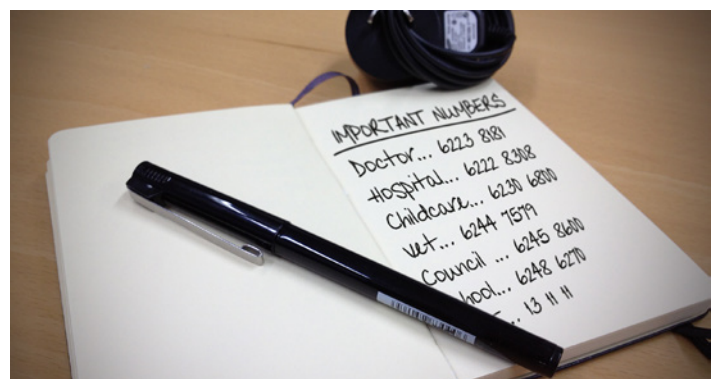 IMPORTANT NUMBERS
Doctor... 6223 8181
Hospital... 6222 8308
Childcare... 6230 6800
Vet... 6244 7579
Council ... 6245 8600
hool... 6248 6270
... 13 11 11